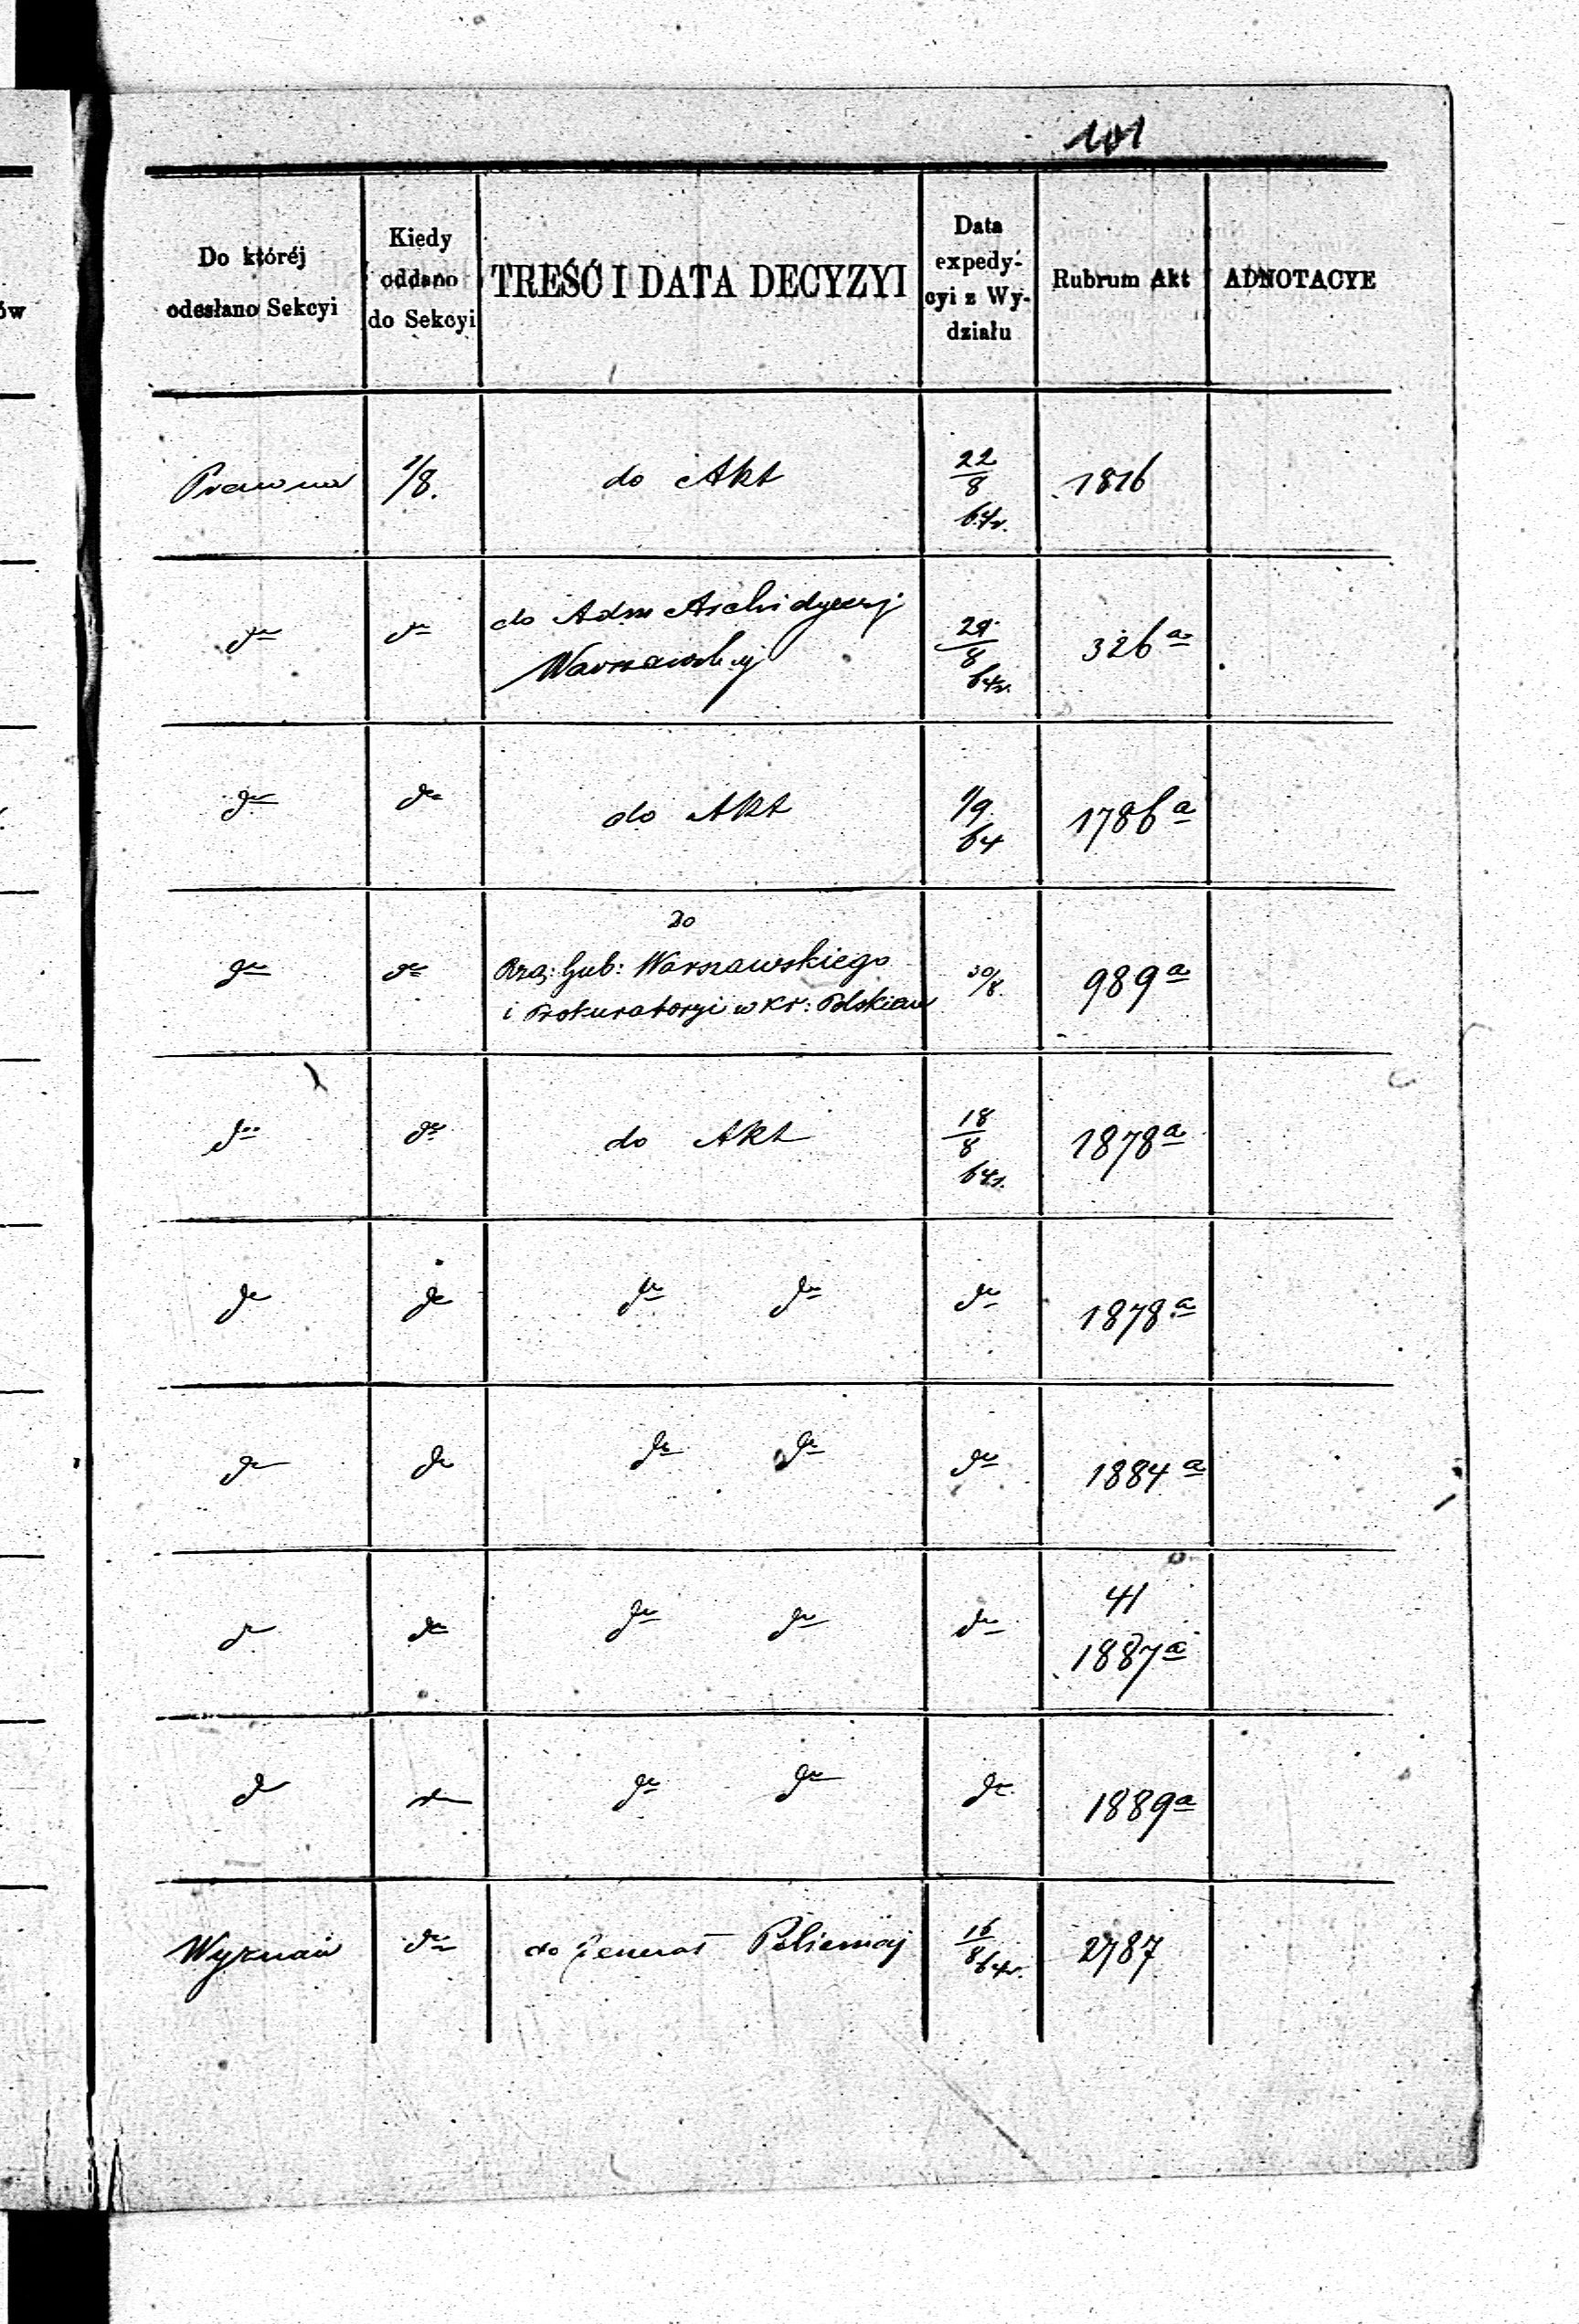 101
ów
Do któréj
odesłano Sekcyi
Kiedy
oddano
do Sekcyi
TREŚĆ I DATA DECYZYI
Data
expedy-
cyi z Wy-
działu
Rubrum Akt
ADNOTACYE
Prawna 1/8. do Akt 22/8 64r. 1816
do do do Adm Archidyecezyi
Warszawskiej
29/8 64r. 326 a
do do do Akt 1/9 64 1786 a
do do Do
Rzą: Gub: Warszawskiego
i Prokuratoryi w Kr: Polskiem
30/8. 989 a
do do do Akt 18/8 64r. 1878 a
do do do do do 1878 a
do do do do do 1884 a
do do do do do 41
1887 a
do do do do do 1889 a
Wyznań do do Generał Policmaj 16/8 64r. 2787